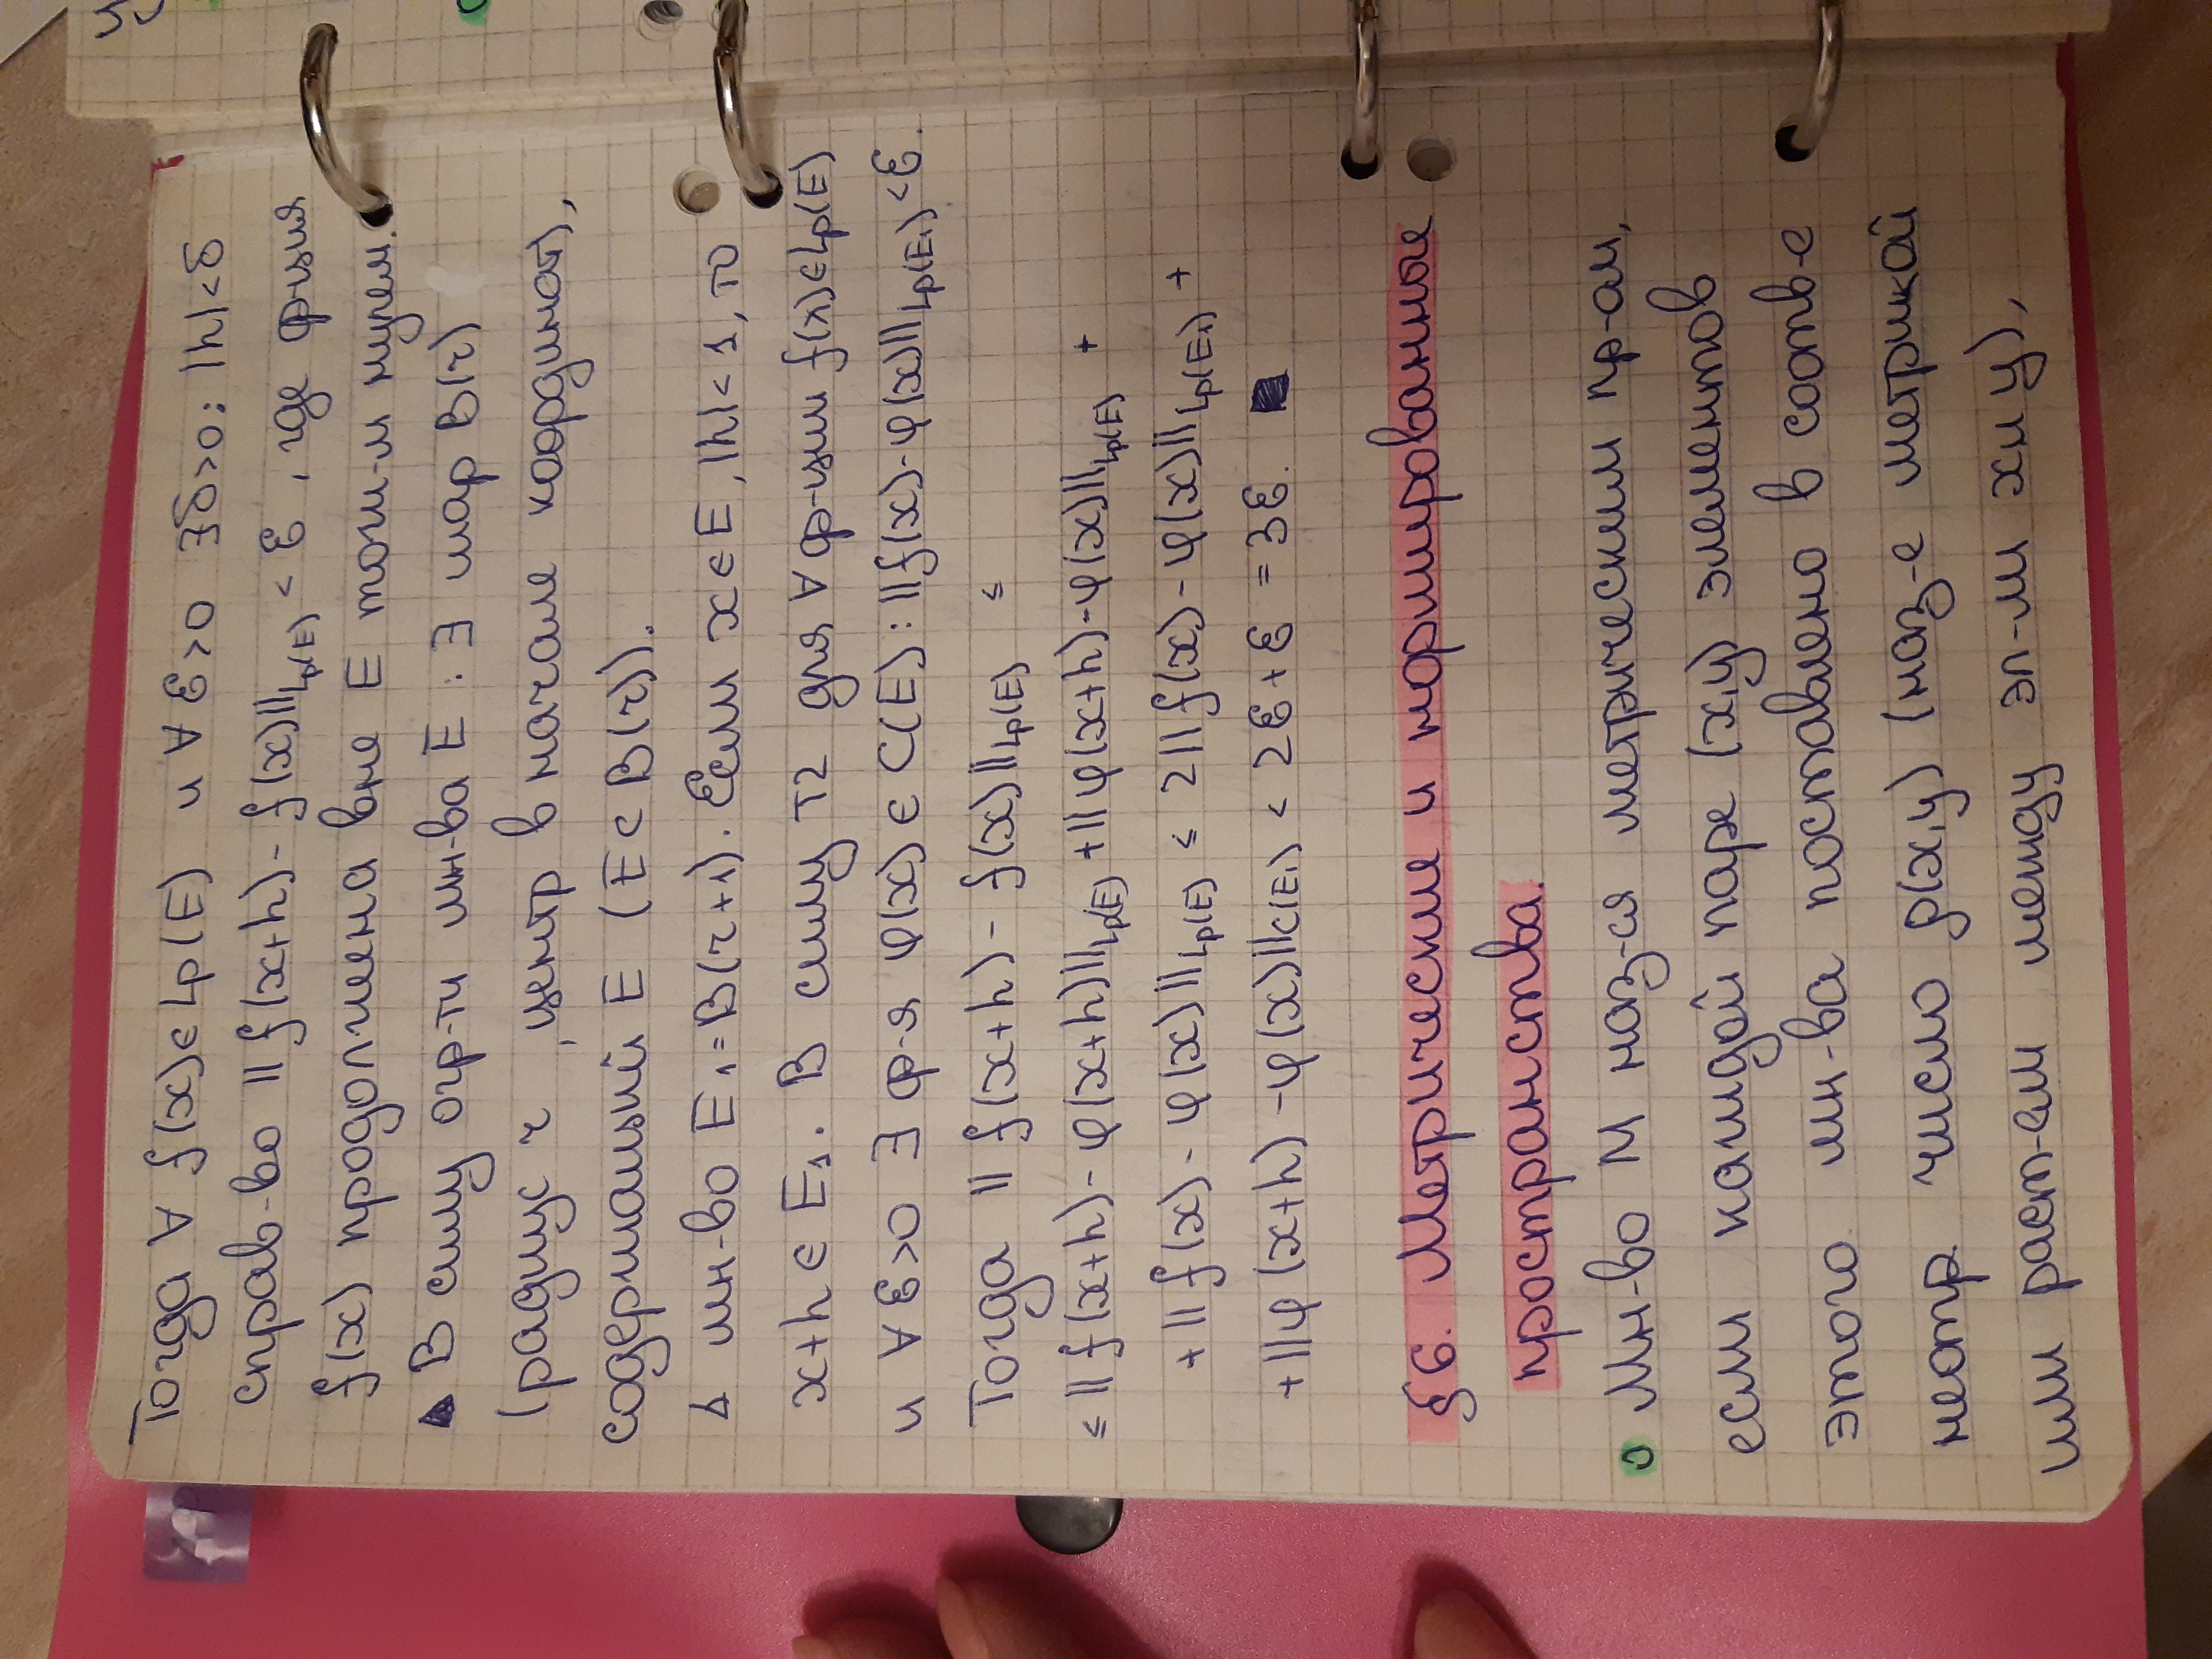 Тогда ∀ f(x)∈Lp(E) и ∀ ε>0 ∃δ>0: |h|<δ
справ-во ||f(x+h)-f(x)||Lp(E) < ε , где ф-ция
f(x) продолжена вне E тожд-м нулем.
▲ В силу огр-ти мн-ва E : ∃ шар B(r)
(радиус r , центр в начале координат),
содержащий E (E⊂B(r)).
Δ мн-во E₁=B(r+1). Если x∈E, |h|<1, то
x+h∈E₁. В силу Т2 для ∀ ф-ции f(x)∈Lp(E)
и ∀ε>0 ∃ ф-я φ(x)∈C(E): ||f(x)-φ(x)||Lp(E₁)<ε.
Тогда ||f(x+h)-f(x)||Lp(E) ≤
≤ ||f(x+h)-φ(x+h)||Lp(E) +||φ(x+h)-φ(x)||Lp(E) +
+||f(x)-φ(x)||Lp(E) ≤ 2||f(x)-φ(x)||Lp(E₁) +
+||φ(x+h)-φ(x)||C(E₁) < 2ε+ε =3ε. ■
§6. Метрические и нормированные
пространства.
О Мн-во М наз-ся метрическим пр-ом,
если каждой паре (x,y) элементов
этого мн-ва поставлено в соотв-е
неотр число ρ(x,y) (наз-е метрикой
или раст-ем между эл-ми x и y),